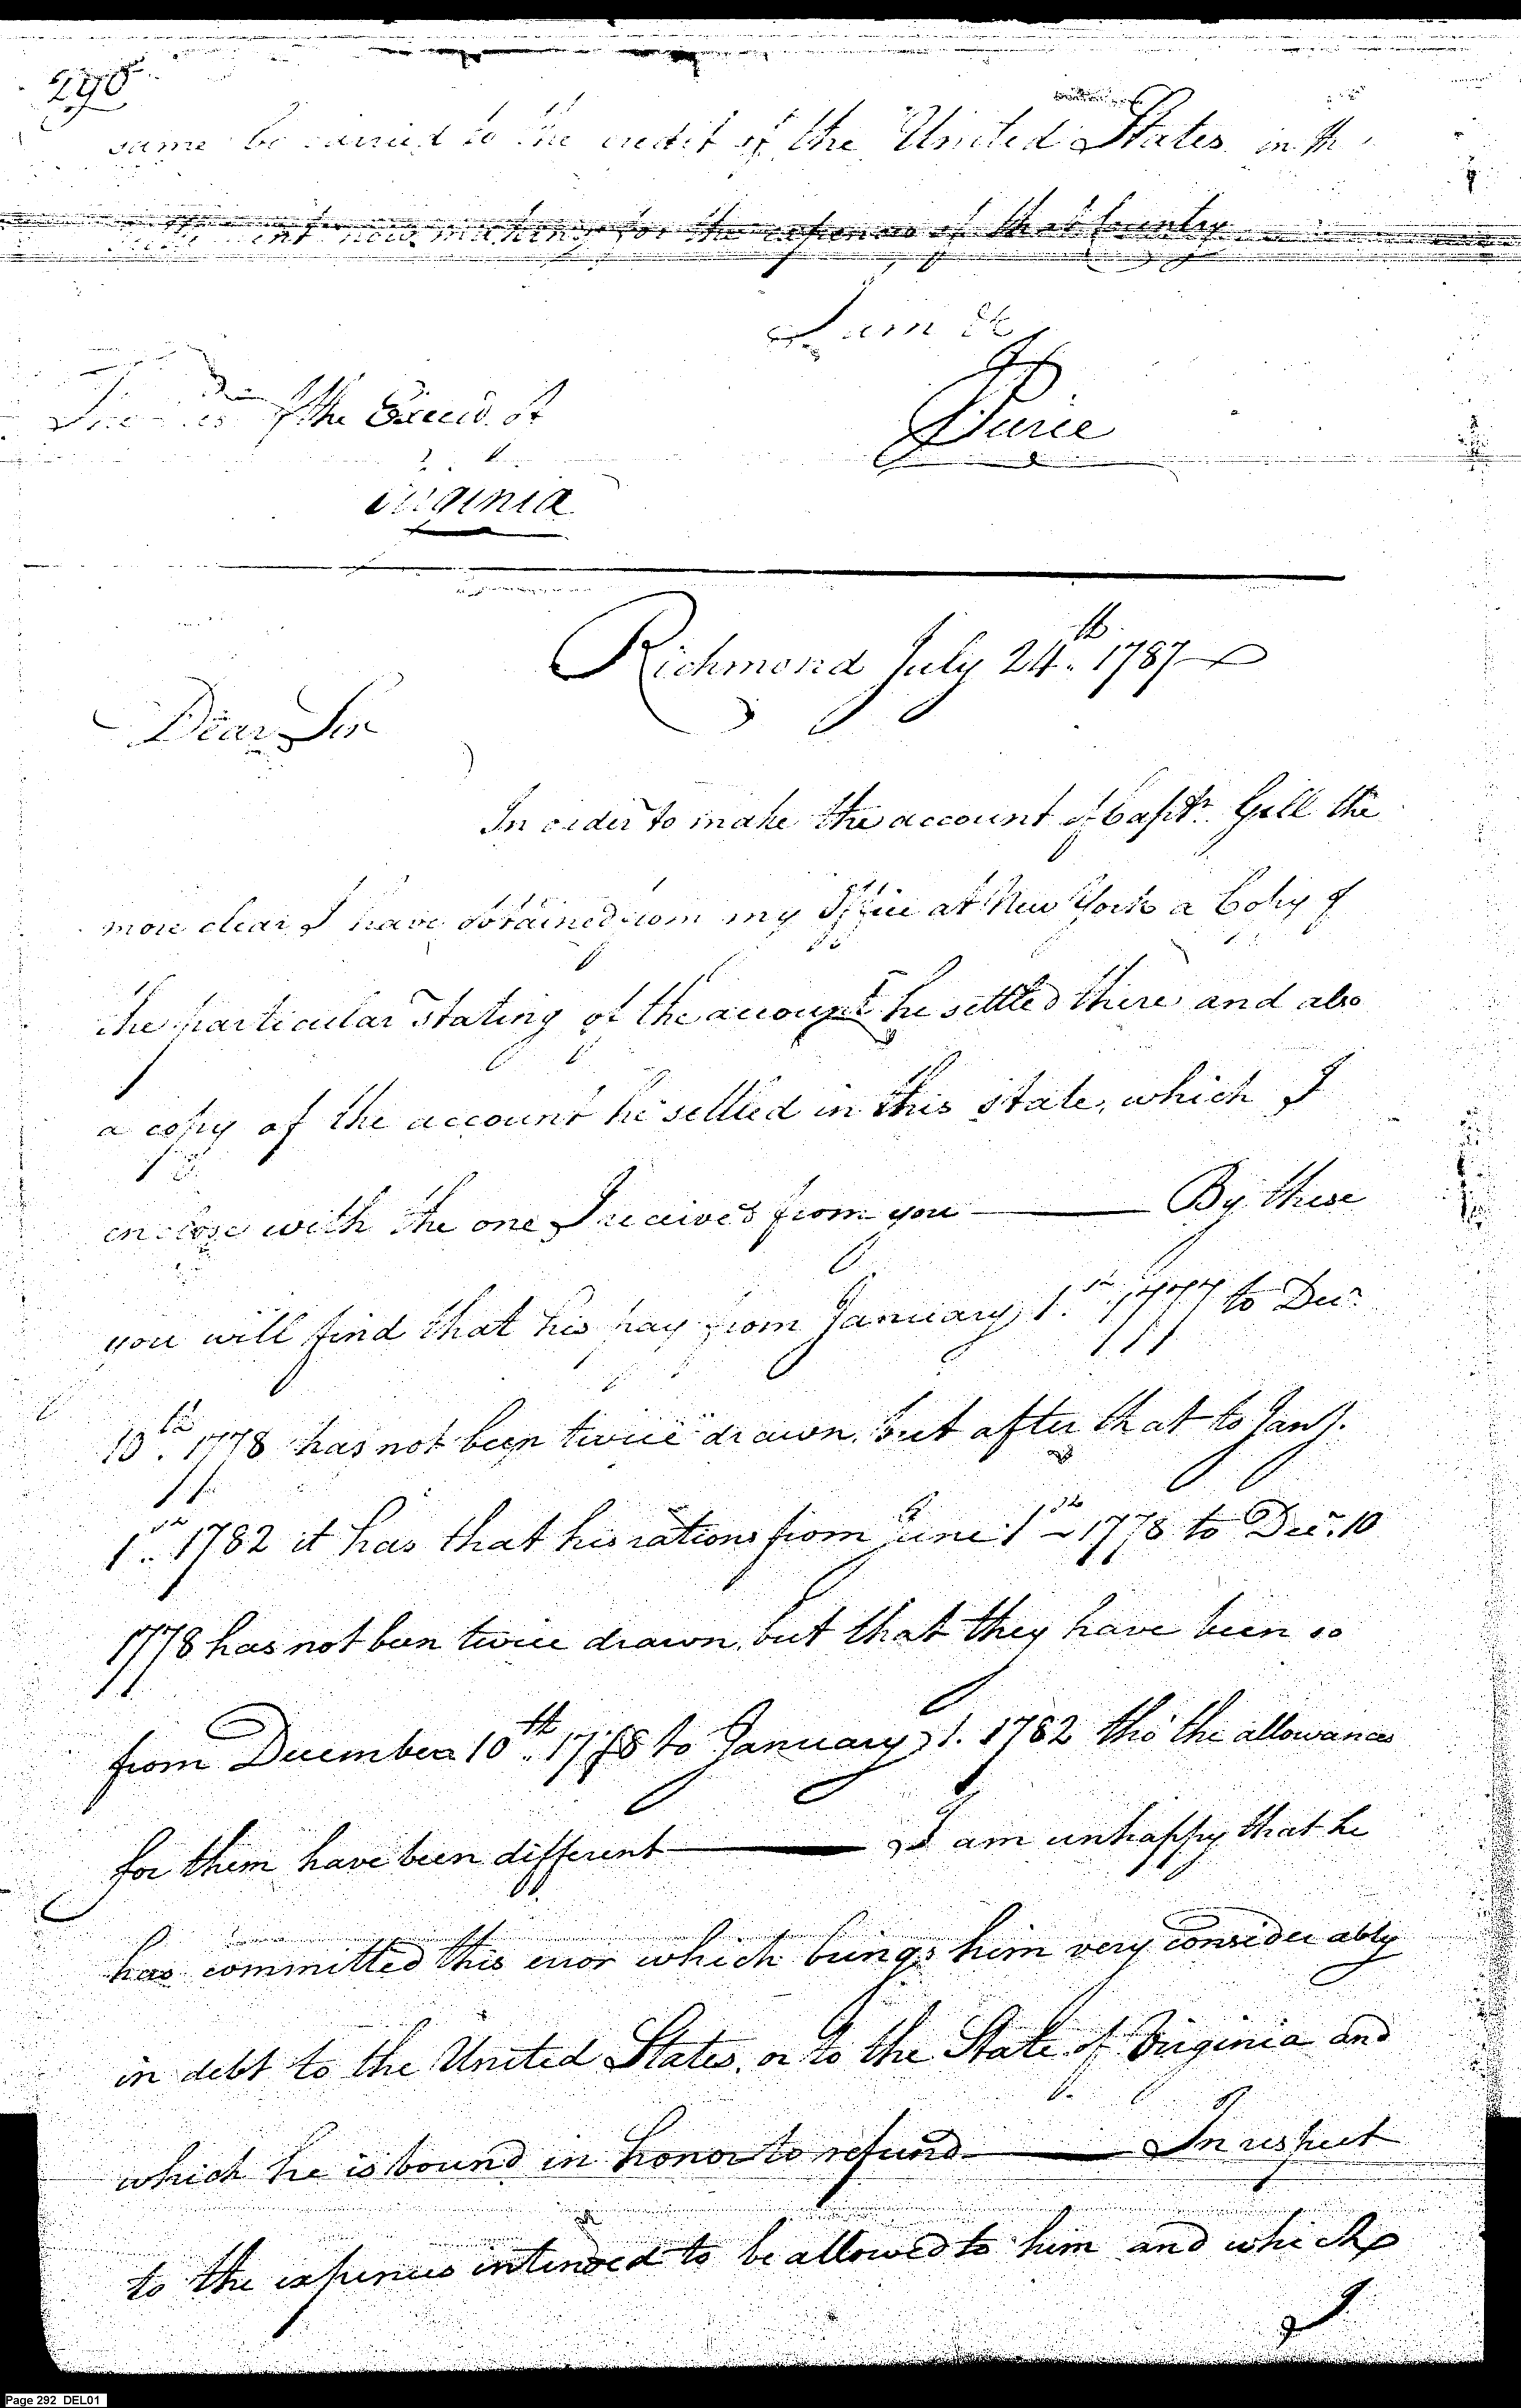 290
same be carried to the credit of the United States in th
now making for the expences of that Country
I am &c
JPierce
of the Execu. of
Virginia
Richmond July 24th. 1787
Dear Sir
In order to make the account of Captn. Gill the
more clear I have obtained from my Office at New York a Copy of
the particular stating of the account he settled there and also
a copy of the account he settled in this state, which I
enclose with the one I received from you — By these
you will find that his pay from January 1st. 1777 to Decr.
10th. 1778 has not been twice drawn, but after that to Jany.
1st. 1782 it has that his rations from June 1st 1778 to Decr. 10
1778 has not been twice drawn, but that they have been so
from December 10th. 1778 to January 1. 1782 tho' the allowances
for them have been different — I am unhappy that he
has committed this error which brings him very considerably
in debt to the United States, or to the State of Virginia and
which he is bound in honor to refund — In respect
to the expences intended to be allowed to him and which
I
Page 292 DEL01